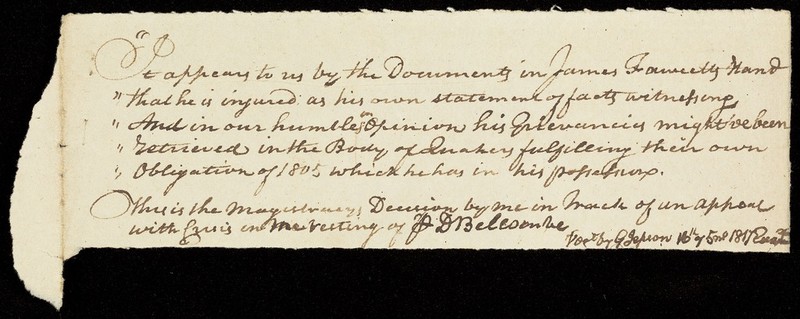 "It appears to us by the Documents in James Fawcetts Hand
" that he is injured as his own statement of facts witnessing
" And in our humble Opinion his Grievancies might've been
" retrieved in the Body of Quakers fulfilling their own
" Obligation of 1805 which he has in his possession.
This is the Magistracys Decision by me in Track of an Appeal
with Crisis in the vesting of D Belcombe
by G Jepson 16th of 5mo